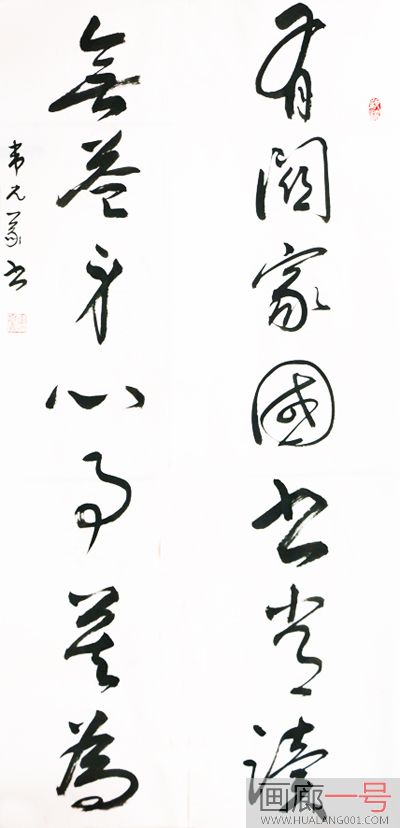 有關家國書常讀
無益身心事莫為
韦克义书
画廊一号
WWW.HUALANG001.COM